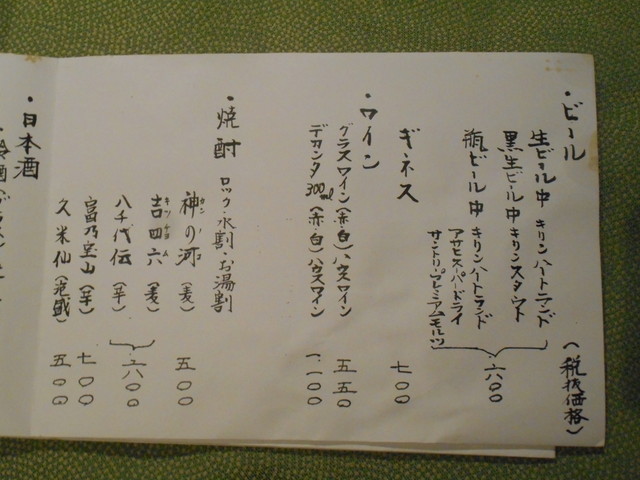 ・ビール
（税抜価格）
生ビール中 キリンハートランド
黒生ビール中 キリンスタウト
瓶ビール中 キリンハートランド
アサヒスーパードライ
サントリープレミアムモルツ
六〇〇
ギネス 七〇〇
・ワイン
グラスワイン（赤・白）ハウスワイン 五五〇
デカンタ300ml（赤・白）ハウスワイン 一、一〇〇
・焼酎 ロック・水割・お湯割
神の河（麦） 五〇〇
吉四六（麦）
八千代伝（芋）
六〇〇
富乃宝山（芋） 七〇〇
久米仙（泡盛） 五〇〇
・日本酒